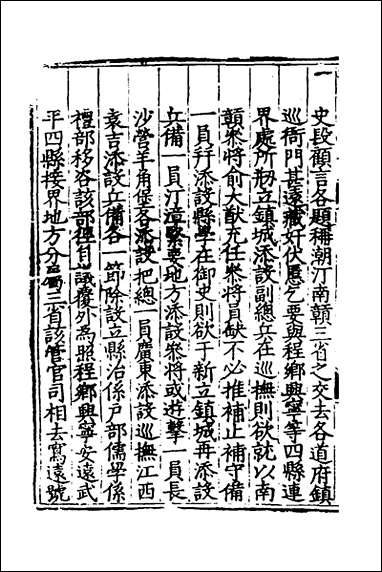 史段顧言各題稱潮汀南贛三省之交去各道府鎮
巡衙門甚遠藏奸伏慝乞要與程鄉興寧等四縣連
界處所刱立鎮城添設副總兵在巡撫則欲就以南
贛叅將俞大猷充任叅將員缺不必推補止補守備
一員幷添設縣學在御史則欲于新立鎮城再添設
兵備一員汀漳緊要地方添設叅將或遊擊一員長
沙營羊角堡各添設把總一員廣東添設巡撫江西
袁吉添設兵備各一節除設立縣治係戶部儒學係
禮部移咨該部徑自議覆外為照程鄉興寧安遠武
平四縣接界地方分屬三省該管官司相去寫遠號